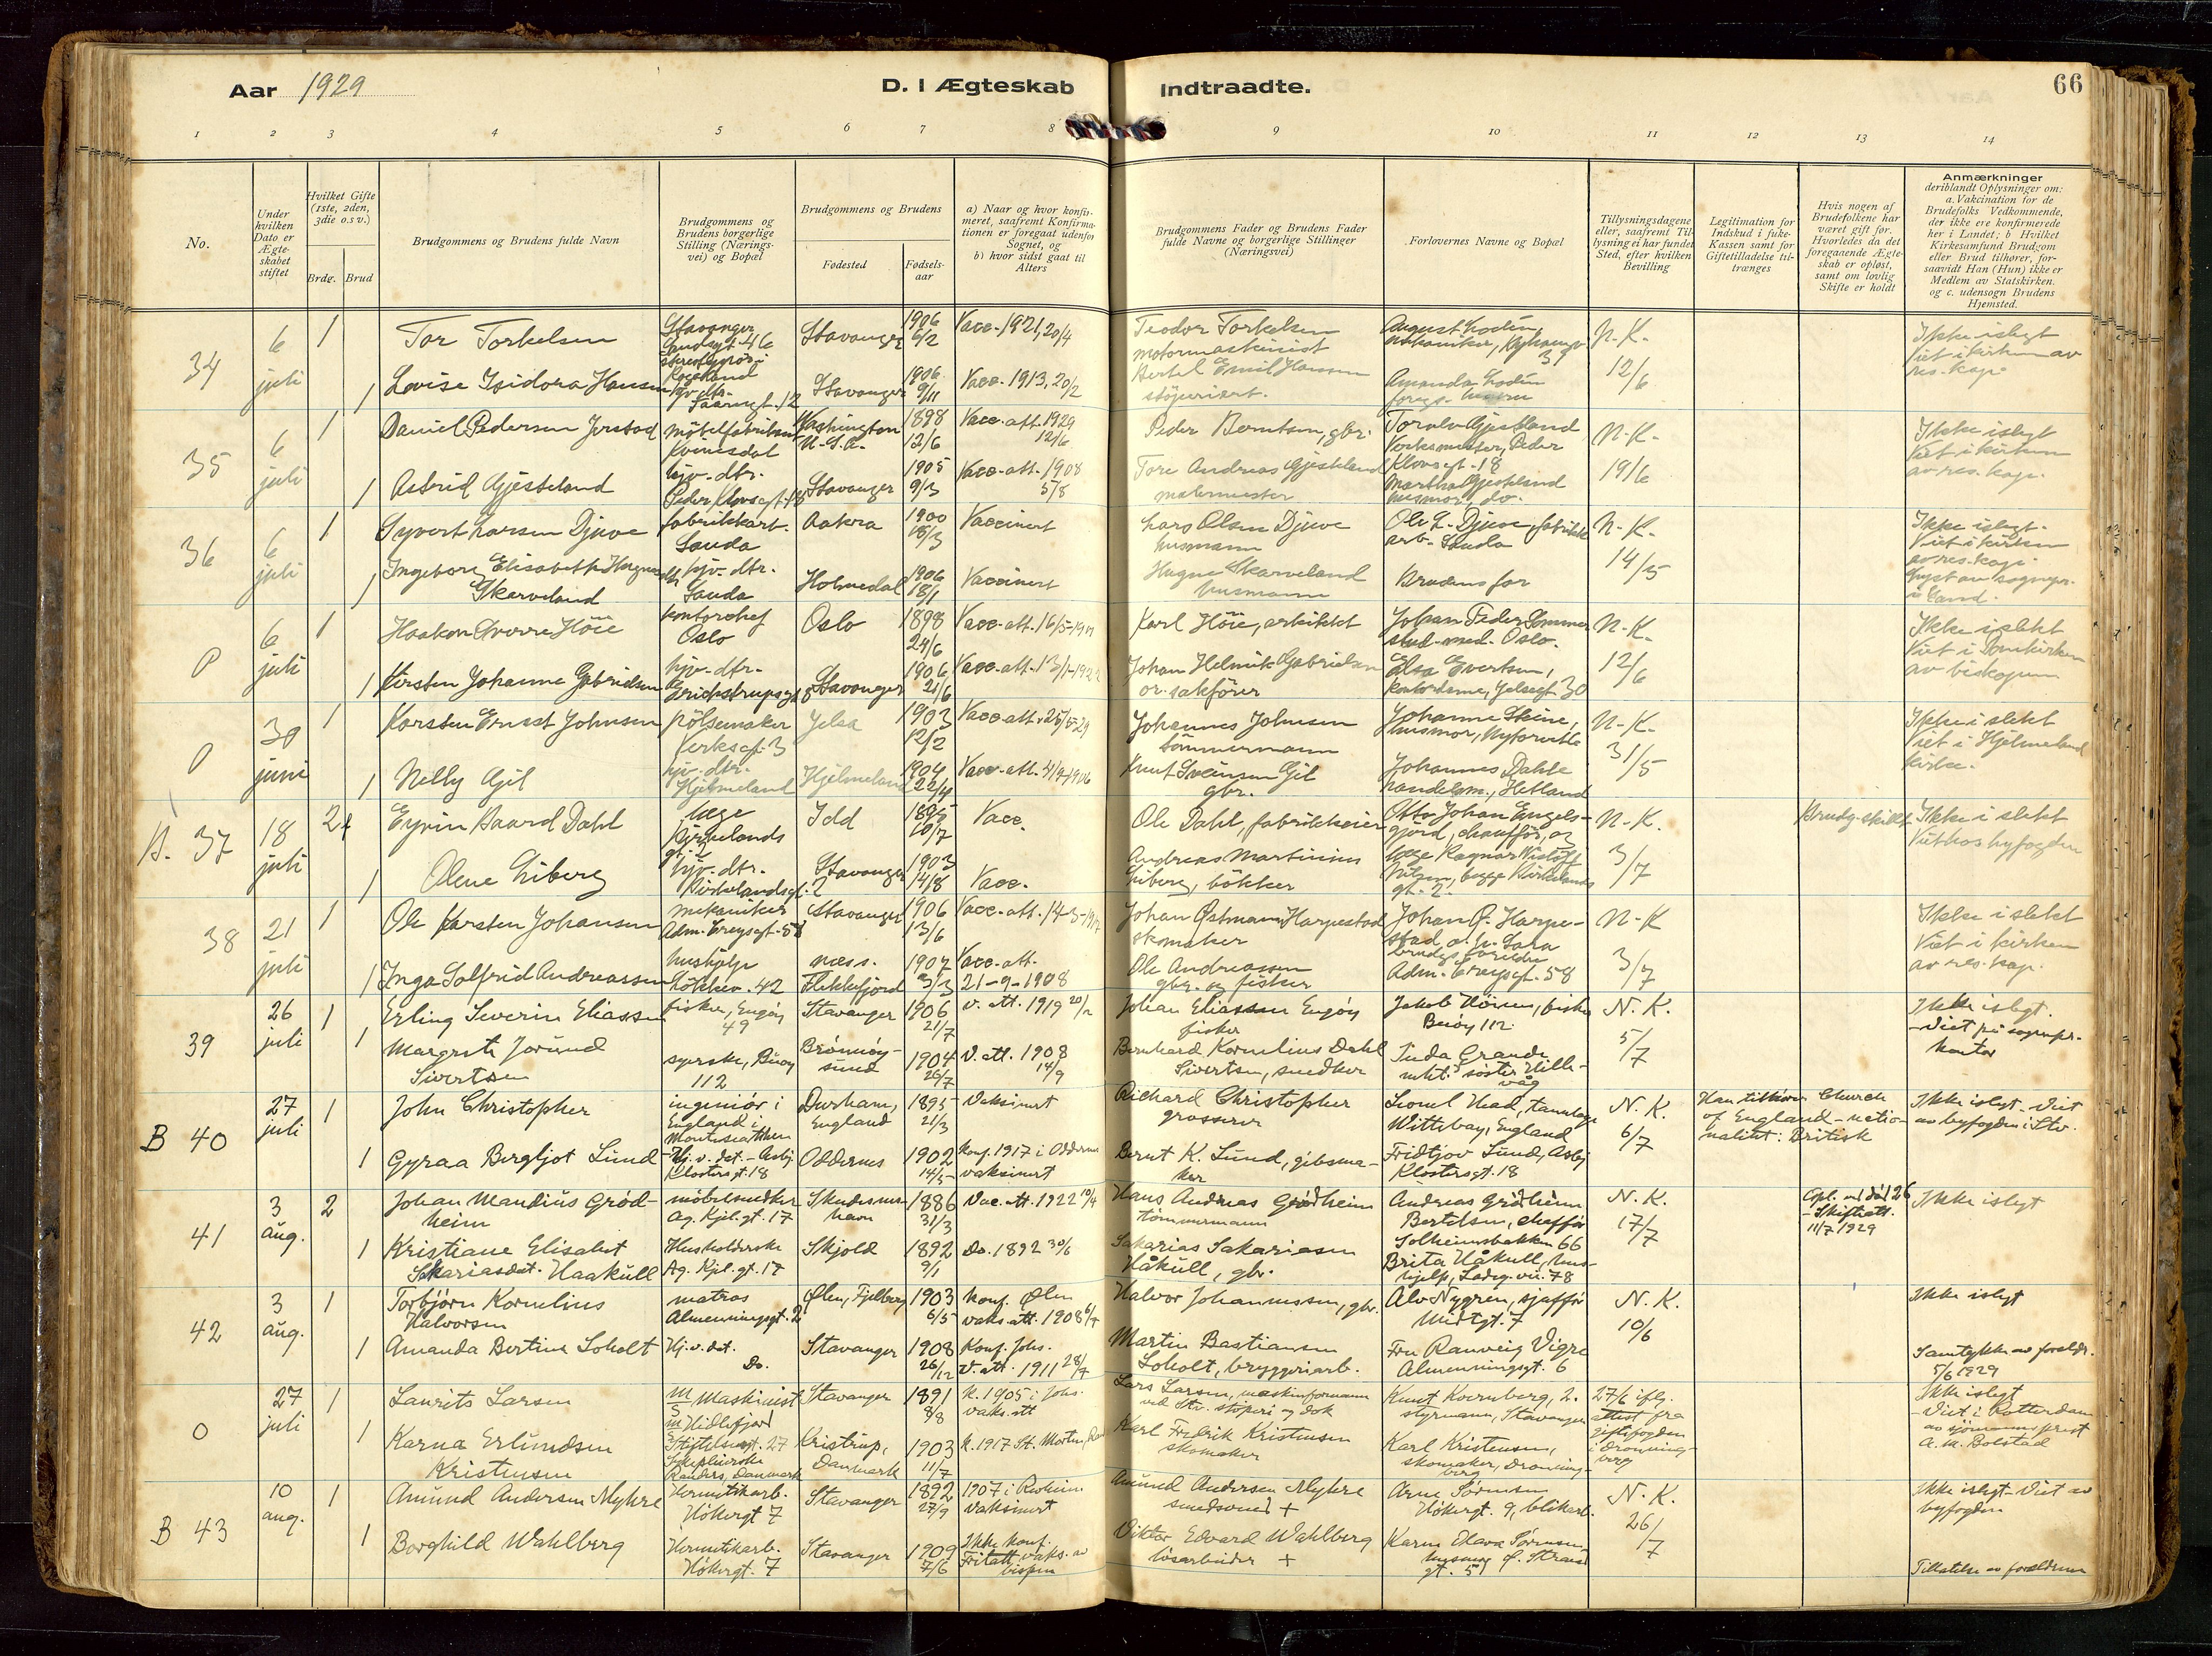 Aar 1929
D. I Ægteskab Indtraadte.
66
1 2 3 4 5 6 7 8 9 10 11 12 13 14
No.
Under hvilken Dato er Ægteskabet stiftet
Hvilket Gifte (1ste, 2den, 3die o.s v.)
Brdg. Brud
Brudgommens og Brudens fulde Navn
Brudgommens og Brudens borgerlige Stilling (Næringsvei) og Bopæl
Brudgommens og Brudens
Fødested
Fødselsaar
a) Naar og hvor konfirmeret, saafremt Konfirmationen er foregaat udenfor Sognet, og
b) hvor sidst gaat til Alters
Brudgommens Fader og Brudens Fader fulde Navne og borgerlige Stillinger (Næringsvei)
Forlovernes Navne og Bopæl
Tillysningsdagene eller, saafremt Tillysning ei har fundet Sted, efter hvilken Bevilling
Legitimation for Indskud i fuke-Kassen samt for Giftetilladelse tiltrænges
Hvis nogen af Brudefolkene har været gift før. Hvorledes da det foregaaende Ægteskab er opløst, samt om lovlig Skifte er holdt
Anmærkninger
deriblandt Oplysninger om: a. Vakcination for de Brudefolks Vedkommende, der ikke ere konfirmerede her i Landet; b Hvilket Kirkesamfund Brudgom eller Brud tilhører, forsaavidt Han (Hun) ikke er Medlem av Statskirken. og c. udensogn Brudens Hjemsted.
34
6 juli
1
Tor Torkelsen
Stavanger
Stavanger
1906 6/2
Vacc. 1921, 20/4
Teodor Torkelsen
motormaskinist
August Lodén,
N.K.
12/6
Ikke i slegt
Viet i kirken av
res. kap.
1
Lovise Isidora Hansen
Stavanger
1906 9/11
Vacc. 1913, 20/2
Bertel Emil Hansen
Amanda Lodén
35
6 juli
1
Daniel Pedersen Jerstad
møbelfabrikant
Kvinesdal
Washington U.S.A.
1898 12/6
Vacc. att. 1929 12/6
Peder Berntsen, gbr.
Torolv Gjesteland
Verksmester, Peder
Klowsgt. 18
N.K.
19/6
Ikke i slegt
Viet i kirken
av res. kap.
1
Astrid Gjesteland
hjv. dtr.
Peder Klowsgt. 18
Stavanger
1905 9/3
Vacc. att. 1908 5/8
Tore Andreas Gjesteland
malermester
Martha Gjesteland
husmor, do.
36
6 juli
1
Syvert Larsen Djuve
fabrikkarb.
Sauda
Aakra
1900 18/3
Vaccinert
Lars Olsen Djuve
husmann
Ole L. Djuve, fabrikk
arb. Sauda
N.K.
14/5
Ikke i slegt.
Viet i kirken
av res. kap.
1
Ingeborg Elisabeth
Skarveland
hjv. dtr.
Sauda
Holmedal
1906 18/1
Vaccinert
Hugne Skarveland
husmann
Brudens far
0
6 juli
1
Haakon Sverre Höie
kontorchef
Oslo
Oslo
1898 24/6
Vacc. att. 16/5
Karl Höie, arkitekt
Johan Peder Sommer
stud. med. Oslo.
N.K.
12/6
Ikke i slekt
Viet i Domkirken
av biskopen
1
Kirsten Johanne Gabrielsen
hjv. dtr.
Stavanger
1906 21/6
Vacc. att. 13/1
Johan Helmik Gabrielsen
or. sakfører
Elsa Evertsen,
kontordame, Jelsagt 30
0
30 juni
1
Karsten Ernst Johnsen
pölsemaker
Jelsa
1903 12/2
Vacc. att. 25/5-29
Johannes Johnsen
tömmermann
Johanne Skeine,
husmor,
N.K.
31/5
Ikke i slekt
Viet i Hjelmeland
kirke.
1
Nelly Gjil
hjv. dtr.
Hjelmeland
Hjelmeland
1904 22/4
Vacc. att. 4/9-1906
Knut Sveinsen Gjil
gbr.
Johannes Dahle
handelsm., Hetland
B. 37
18 juli
2
Eyvin Baard Dahl
læge
Kirkelands gt. 2
Idd
1895 10/7
Vacc.
Ole Dahl, fabrikkeier
Otto Johan Engelsgjord, chauffør, og
N.K.
3/7
Brudg. skilt
Ikke i slekt
Viet hos byfogden
1
Olene Liberg
hjv. dtr.
Kirkelandsgt. 2
Stavanger
1903 14/8
Vacc.
Andreas Martinius
Liberg, bökker
læge Ragnar Wisløff
Nilsen, begge Kirkelands
gt. 2.
38
21 juli
1
Ole Karsten Johansen
mekaniker
Adm. Creysgt. 58
Stavanger
1906 13/6
Vacc. att. 14-3-1917
Johan Østmann Harpestad
skomaker
Johan Ø. Harpestad o. h. Sara
brudg. foreldre
Adm. Creysgt. 58
N.K
3/7
Ikke i slekt
Viet i kirken
av res. kap.
1
Inga Solfrid Andreassen
hushjelp
Løkkev. 42
næss.
Flekkefjord
1907 3/3
Vacc. att.
21-9-1908
Ole Andreassen
gbr. og fisker
39
26 juli
1
Erling Severin Eliassen
fisker, Engøy
49
Stavanger
1906 21/7
v. att. 1919 20/2
Johan Eliassen Engøy
fisker
Jakob Höines, fisker
Buøy 112
N.K.
5/7
Ikke i slegt.
- Viet på sognepr.
kontor
1
Margrete Jorund
Sivertsen
syerske, Buøy
112
Brønnøysund
1904 26/7
v. att. 1908 14/9
Bernhard Kornelius Dahl
Sivertsen, snedker
Tuda Grande
søster Hillevåg
B 40
27 juli
1
John Christopher
ingeniør i
England
Durham,
England
1895 21/3
Vaksinert
Richard Christopher
grosserer
Lionel Head, tannlege
Wittebay, England
N.K.
6/7
Han tilhører Church
of England - nationalitet: Britisk
Ikke i slegt - Viet
av byfogden i Stv.
1
Gyraa Bergljot Lund
Hj. v. dat. - Asbj.
Klostersgt. 18
Oddernes
1902 14/5
Konf. 1917 i Oddernes
vaksinert
Bernt K. Lund, gibsmaker
Fridtjov Lund, Asbj.
Klostersgt. 18
41
3 aug.
2
Johan Maudius Grödheim
møbelsnedker
Ag. Kjel. gt. 17
Skudesneshavn
1886 31/3
Vac. att. 1922 10/4
Hans Andreas Grödheim
tømmermann
Andreas Grödheim
Bertelsen, chaffør
Solheimsbakken 66
N.K.
17/7
Opl. ved død 26
- Skifteatt.
11/7 1929
Ikke i slegt
1
Kristiane Elisabet
Sakariasdat. Haakull
Husholderske
Ag. Kjel. gt. 17
Skjold
1892 9/1
Do. 1892 30/6
Sakarias Sakariasen
Håkull, gbr.
Brita Håkull, hushjelp, Ladeg. vei. 78
42
3 aug.
1
Torbjørn Kornelius
Halvorsen
matros
Almenningsgt. 2
Ølen, Fjelberg
1903 6/5
Konf. Ølen
vaks. att. 1908 6/4
Halvor Johannessen, gbr.
Alv Nygren, sjaffør
Midtgt. 7
N.K.
10/6
Ikke i slegt
1
Amanda Bertine Soholt
Hj. v. dat.
Do.
Stavanger
1908 26/12
Konf. Johs.
v. att. 1911 28/7
Martin Bastiansen
Soholt, bryggeriarb.
Fru Ranveig Vigre
Almenningsgt. 6
Samtykke av foreldr.
5/6 1929
0
27 juli
1
Laurits Larsen
Maskinist
Stavanger
1891 8/8
K. 1905 i Johs.
vaks. att
Lars Larsen, maskinformann
ved Stv. støperi og dok
Knut Kvernberg, 2.
styrmann, Stavanger
27/6 iflg.
attest fra
giftefogden
i Dronningborg
Ikke i slegt
- Viet i Rotterdam
av sjømannsprest
A. M. Bolstad
1
Karna Erlundsen
Kristensen
Randers, Danmark
Kristrup,
Danmark
1903 11/7
K. 1917 St. Morten,
Karl Fredrik Kristensen
skomaker
Karl Kristensen,
skomaker, Dronningborg
B 43
10 aug.
1
Amund Andersen Myhre
Hermetikarb.
Hökergt 7
Stavanger
1892 27/9
1907 i
Vaksinert
Amund Andersen Myhre
smedsvend +
Arne Sørensen
Hökergt. 9, blikarb.
N.K.
26/7
Ikke i slegt - Viet av
byfogden
1
Borghild Wahlberg
Hermetikarb.
Hökergt. 7
Stavanger
1909 7/6
Ikke konf.
Fritatt vaks. av
bispen
Viktor Edvard Wahlberg
løsarbeider +
Karen Sørensen,
husmor Ø. Strand
gt. 51
Tillatelse av foreldrene